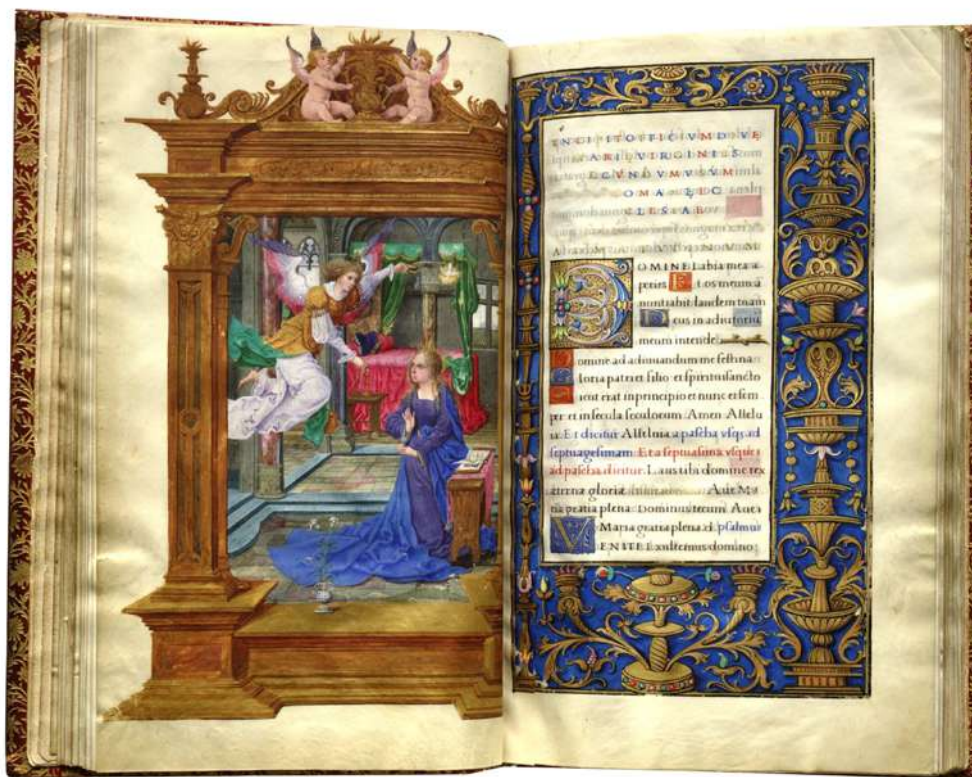 INCIPIT OFFICVM D VE
ARI VIRGINIS
ECVNDVM VSVM
OMA EC
CLESAE
OMINE labia mea a
peries E t os meum a
nuntiabit laudem tuam
D eus in adiutoriu
meum intende
D omine ad adiuuandum me festina
G loria patri et filio et spiritui sancto
S icut erat in principio et nunc et sem
per et in secula seculorum Amen Allelu
ia. Et dicitur Alleluia a pascha vsqs ad
septuagesimam Et a septuagesima vsques
ad pascha dicitur. Laus tibi domine rex
eterne gloriæ Aue Ma
ria gratia plena: Dominus tecum Aue
Maria gratia plena psalmus
VENITE Exultemus domino